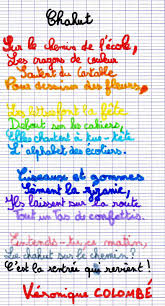 Chahut
Sur le chemin de l'école,
Les crayons de couleur
Sautent du cartable
Pour dessiner des fleurs,
Les lettres font la fête
Debout sur les cahiers,
Elles chantent à tue-tête
L'alphabet des écoliers.
Ciseaux et gommes
Sèment la zizanie,
Ils laissent sur la route
Tout un tas de confettis.
Entends-tu ce matin,
Le chahut sur le chemin ?
C'est la rentrée qui revient !
Véronique COLOMBÉ